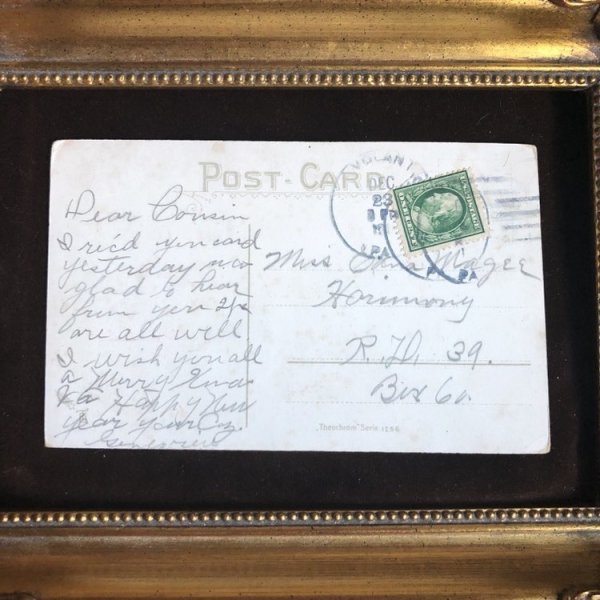 POST-CARD
VOLANT
DEC
23
PA
PA
ONE CENT
Dear Cousin
I rec'd your card
yesterday was
glad to hear
from you
are all well
I wish you all
a Merry Xmas
& a Happy New
year your
Miss Magee
Harimony
R. D. 39.
Box 60.
"Theochrom" Serie 1266